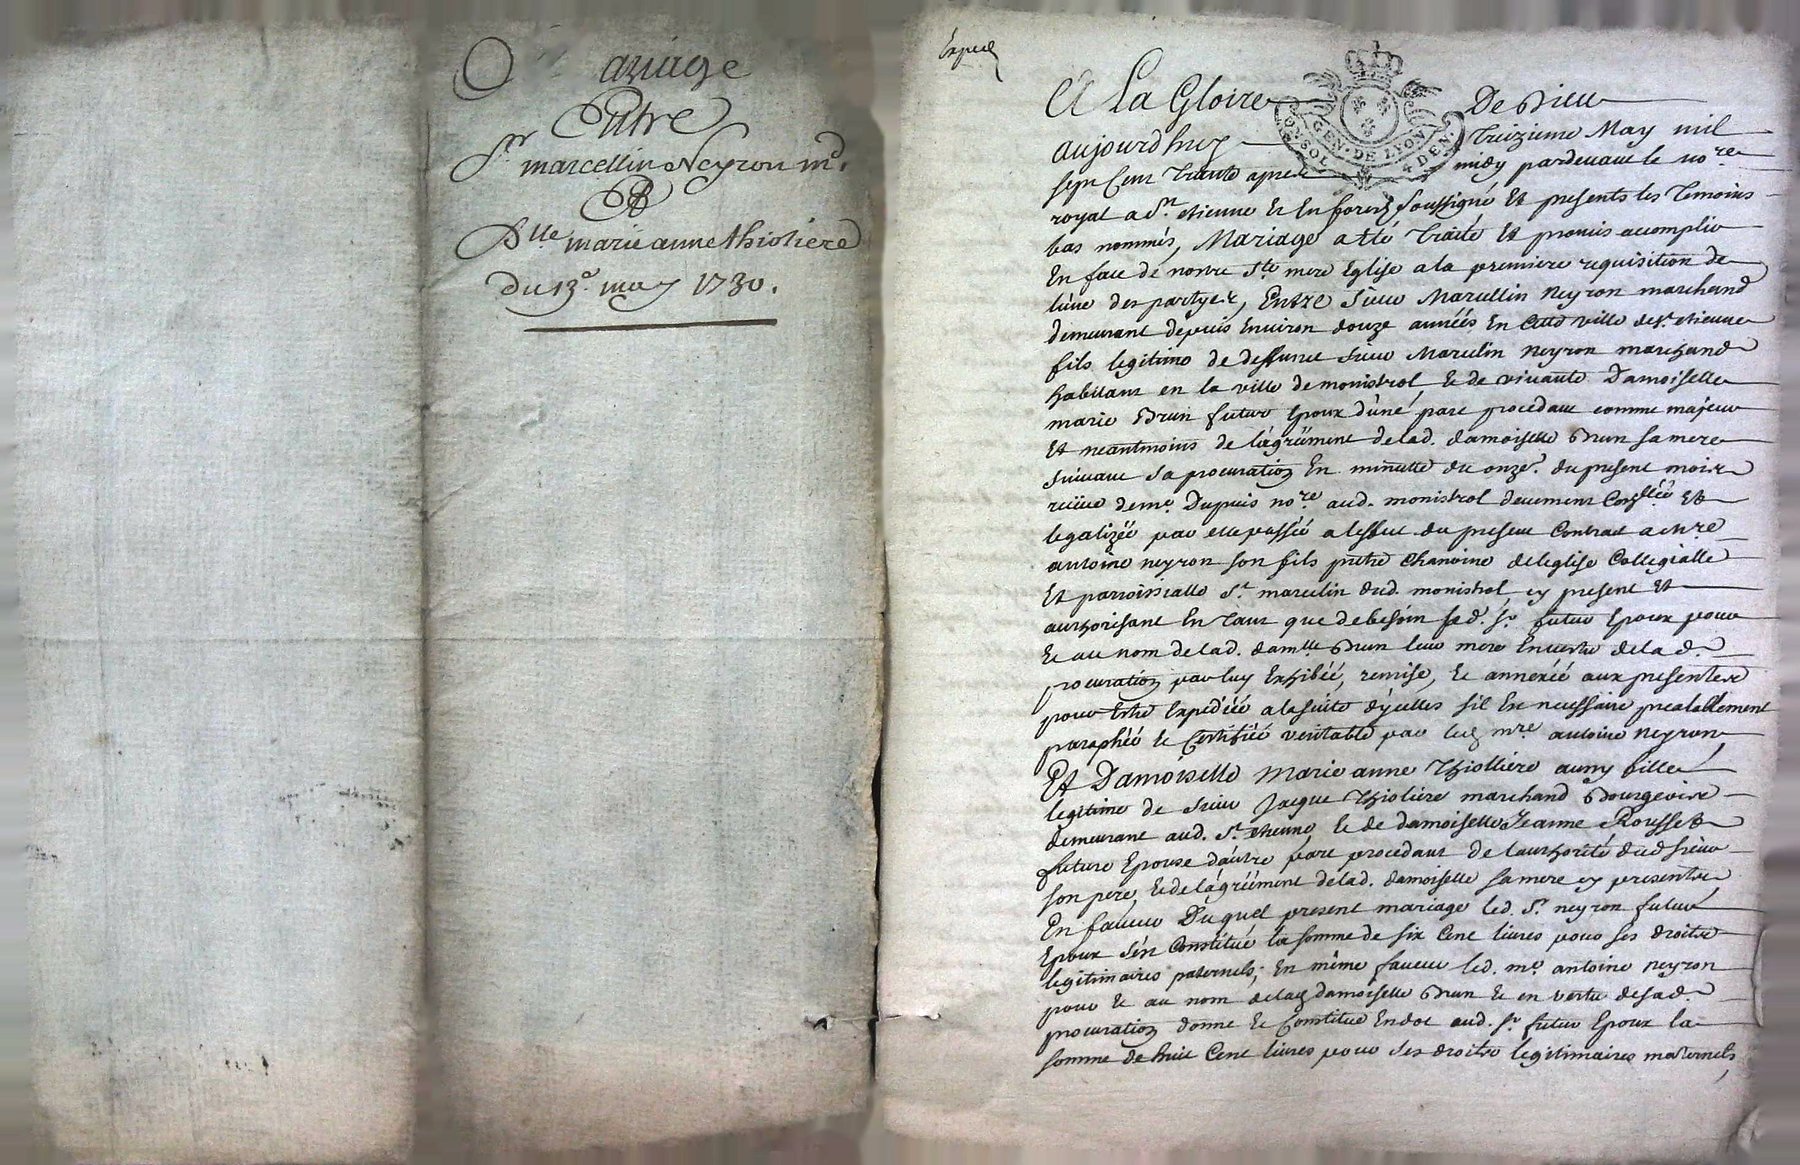 Mariage
Entre
Sr marcellin Neyron md.
Et
Dlle marie anne thioliere
du 13e may 1730.
Exped
A La Gloire De Dieu
GEN. DE LYON
aujourdhuy Treizieme May mil
sept Cent Trente apres midy pardevant le nore
royal a St. etienne Et En forez soussigné Et presents les Temoins
bas nommés, Mariage a Eté Traité Et promis accomplir
En face de nontre Ste mere Eglise a la premiere requisition de
lune des partyes, Entre sieur Marcellin Neyron marchand
demeurant depuis Environ douze années En Cette ville de St. etienne
fils legitime de deffunct sieur Marcelin Neyron marchand
habitant en la ville de monistrol Et de vivante Damoiselle
marie Brun futur Epoux d'une part procedant comme majeur
Et neantmoins de l'agréement de lad. damoiselle Brun sa mere
suivant sa procuration En minutte du onze. du present mois
reçüe de me. Dupuis nore. aud. monistrol deuement Conllée Et
legalizée par elle passée a leffect du present Contract a mre
antoine neyron son fils prêtre Chanoine de leglise Collegialle
Et parroissialle St. marcelin dud. monistrol, cy present Et
authorisant En tant que de besoin led. sr. futur Epoux pour
Et au nom de lad. damlle Brun leur mere En vertu de lad.
procuration par luy Exhibée, remise, Et annexée aux presentes
pour Estre Expediée a la suite d'ycelles sil Est necessaire prealablement
paraphée Et Certifiée veritable par led. mre antoine neyron,
Et Damoiselle Marie anne Thiolliere aussy fille
legitime de sieur Jacque Thioliere marchand Bourgeois
demeurant aud. St. etienne, Et de damoiselle Jeanne Rousset
future Epouse d'autre part procedant de l'authorité dud sieur
son pere, Et de l'agréement de lad. damoiselle sa mere cy presents
En faveur Duquel present mariage led. Sr. neyron futur
Epoux s'est Constitué la somme de six Cent livres pour ses droits
legitimaires paternels; En même faveur led. me. antoine neyron
pour Et au nom de lad damoiselle Brun Et en vertu de sad.
procuration donne Et Constitue En dot aud. sr. futur Epoux la
somme de huit Cent livres pour ses droits legitimaires maternels,